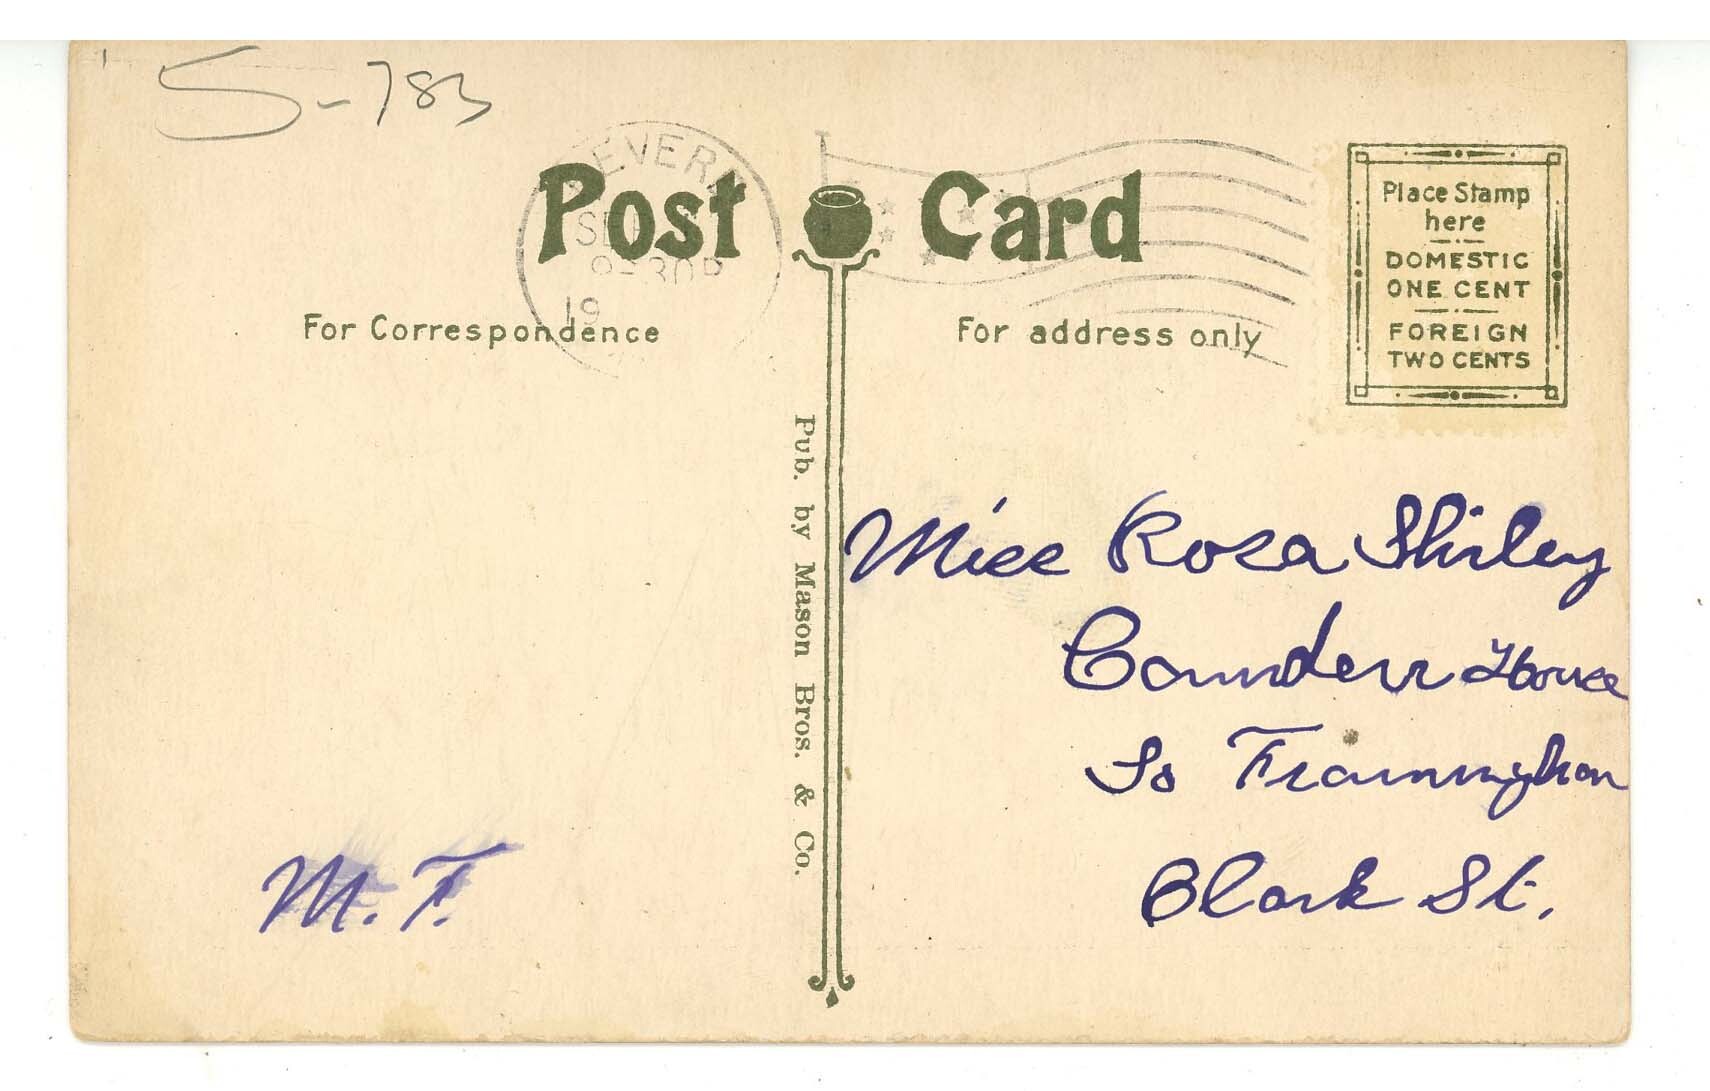 S-783
Post Card
For Correspondence
For address only
Place Stamp
here
DOMESTIC
ONE CENT
FOREIGN
TWO CENTS
19
Pub. by Mason Bros. & Co.
Miss Rosa Shirley
House
So Framingham
Clark St.
M. F.